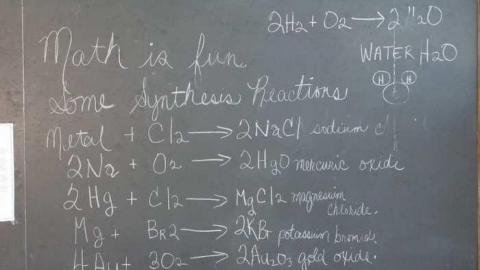 2H2 + O2 → 2 H2O
Math is fun.
WATER H2O
H H
Some Synthesis Reactions
Metal + Cl2 → 2NaCl sodium
2Na + O2 → 2HgO mercuric oxide
2Hg + Cl2 → MgCl2 magnesium
chloride.
Mg + BR2 → 2KBr potassium bromide
4Au + 3O2 → 2Au2O3 gold oxide.